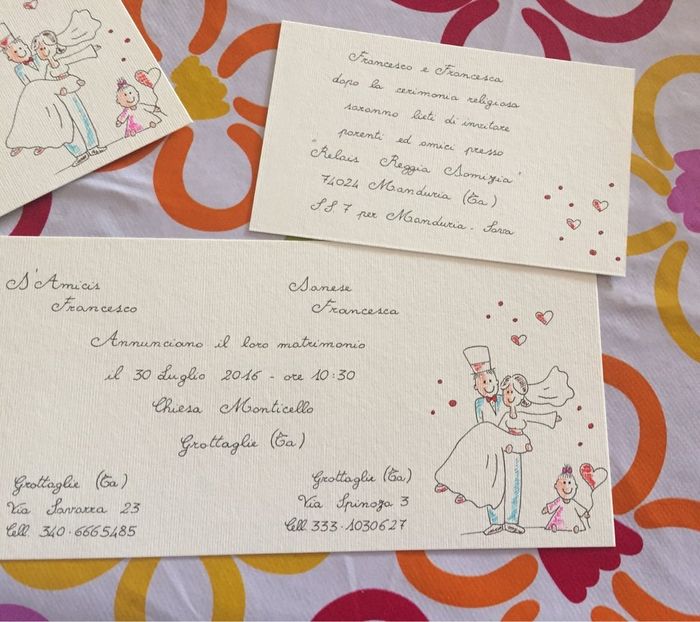 Francesco e Francesca
dopo la cerimonia religiosa
saranno lieti di invitare
parenti ed amici presso
"Relais Reggia Domizia"
74024 Manduria (Ta)
SS 7 per Manduria - Sava
D'Amicis
Francesco
Sanese
Francesca
Annunciano il loro matrimonio
il 30 Luglio 2016 - ore 10:30
Chiesa Monticello
Grottaglie (Ta)
Grottaglie (Ta)
Via Savarra 23
Cell. 340.6665485
Grottaglie (Ta)
Via Spinoza 3
Cell 333.1030627